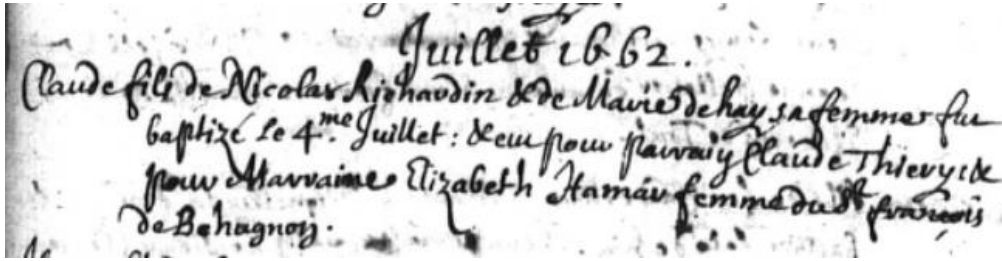 Juillet 1662.
Claude fils de Nicolas Richardin & de Marie dehay sa femme fut
baptizé le 4.me Juillet : & eut pour parrain Claude Thiery, &
pour Marraine Elizabeth Hamar femme du Sr françois
de Behagnon.